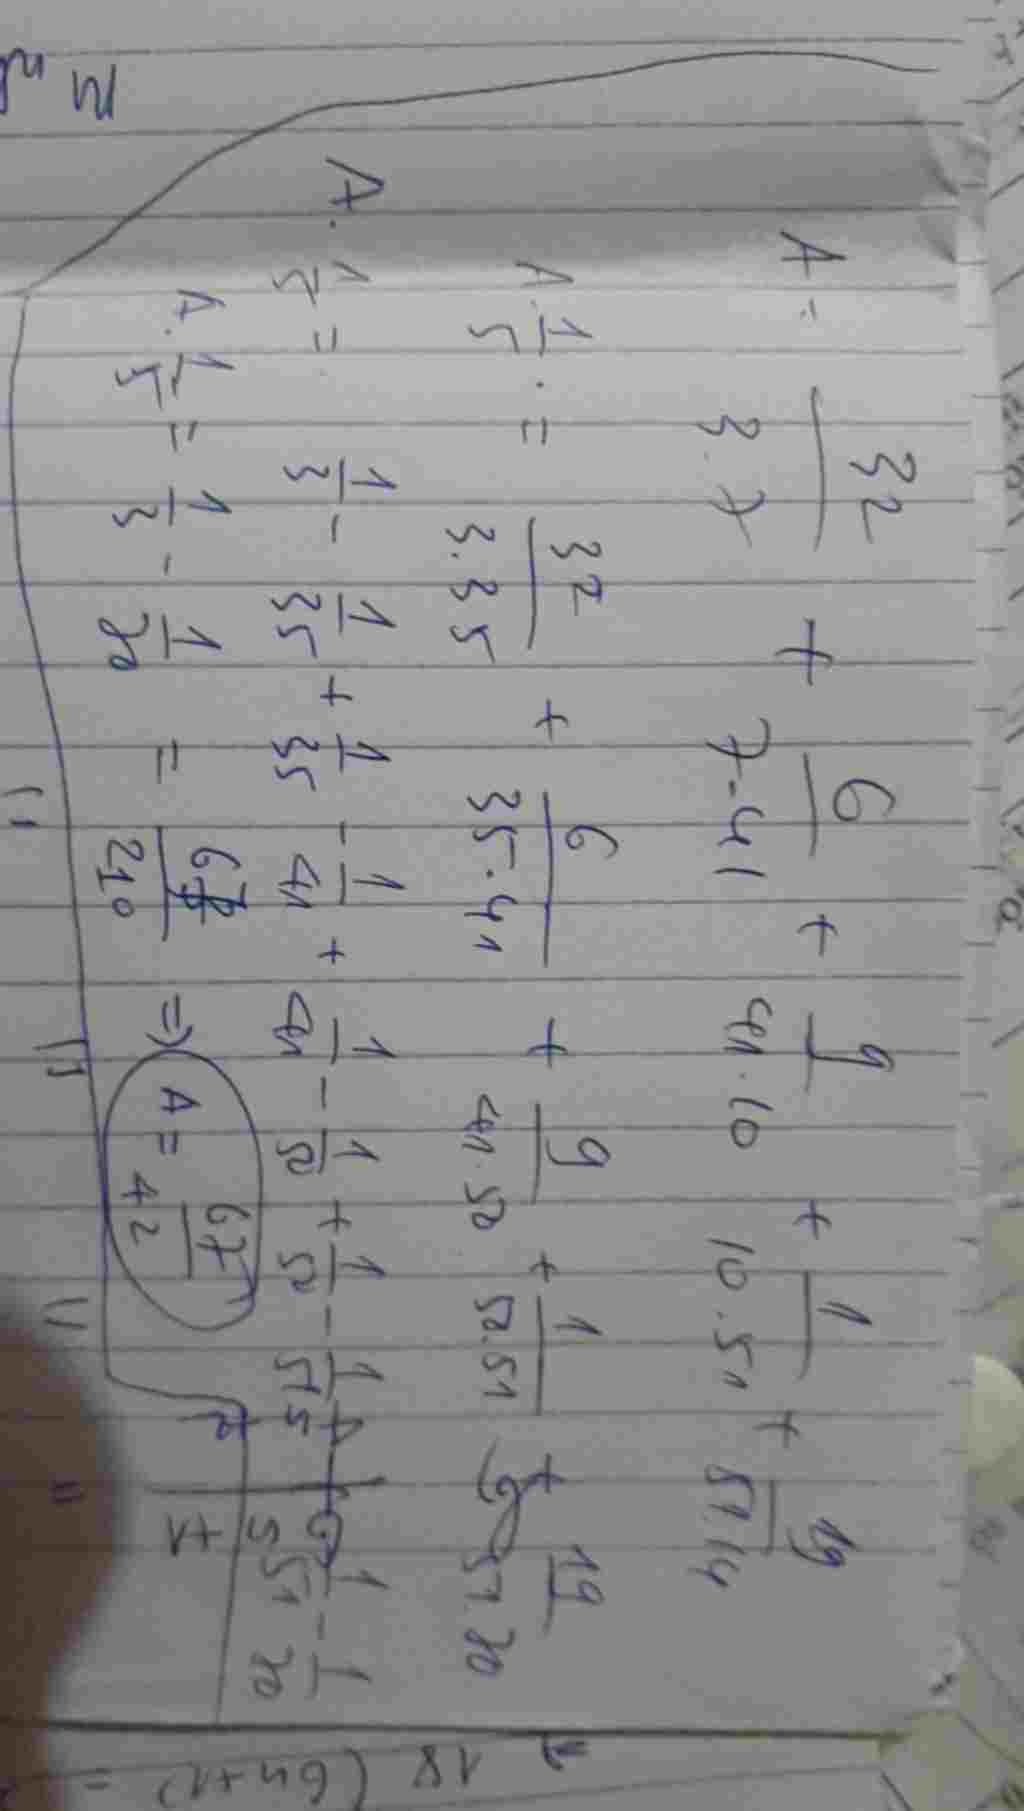 A = 32/3.7 + 6/7.41 + 9/41.10 + 1/10.51 + 19/51.14
A. 1/5 = 32/3.35 + 6/35.41 + 9/41.50 + 1/50.51 + 19/51.70
A. 1/5 = 1/3 - 1/35 + 1/35 - 1/41 + 1/41 - 1/50 + 1/50 - 1/51 + 1/51 - 1/70
A. 1/5 = 1/3 - 1/70 = 67/210 => A = 67/42
18 (6n+1) =